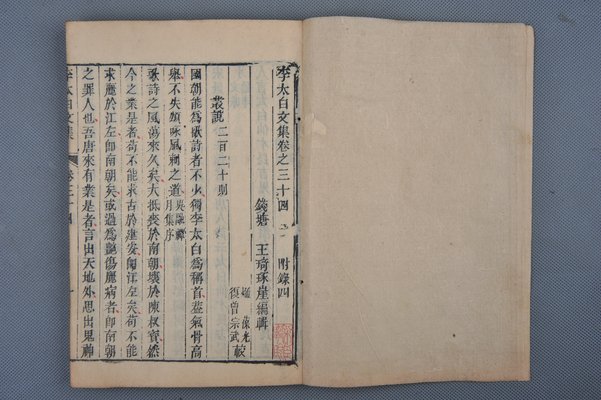 李太白文集卷之三十四 附錄四
錢塘 王琦琢崖編輯
縉 葆光
復曾 宗武 較
叢說 二百二十則
國朝能為歌詩者不少獨李太白為稱首蓋氣骨高
舉不失頌詠風刺之道 吳融禪月集序
歌詩之風蕩來久矣大抵喪於南朝壞於陳叔寶然
今之業是者苟不能求古於建安即江左矣苟不能
求麗於江左即南朝矣或過為艷傷麗病者即南朝
之罪人也吾唐來有業是者言出天地外思出鬼神
李太白文集 卷三十四 一